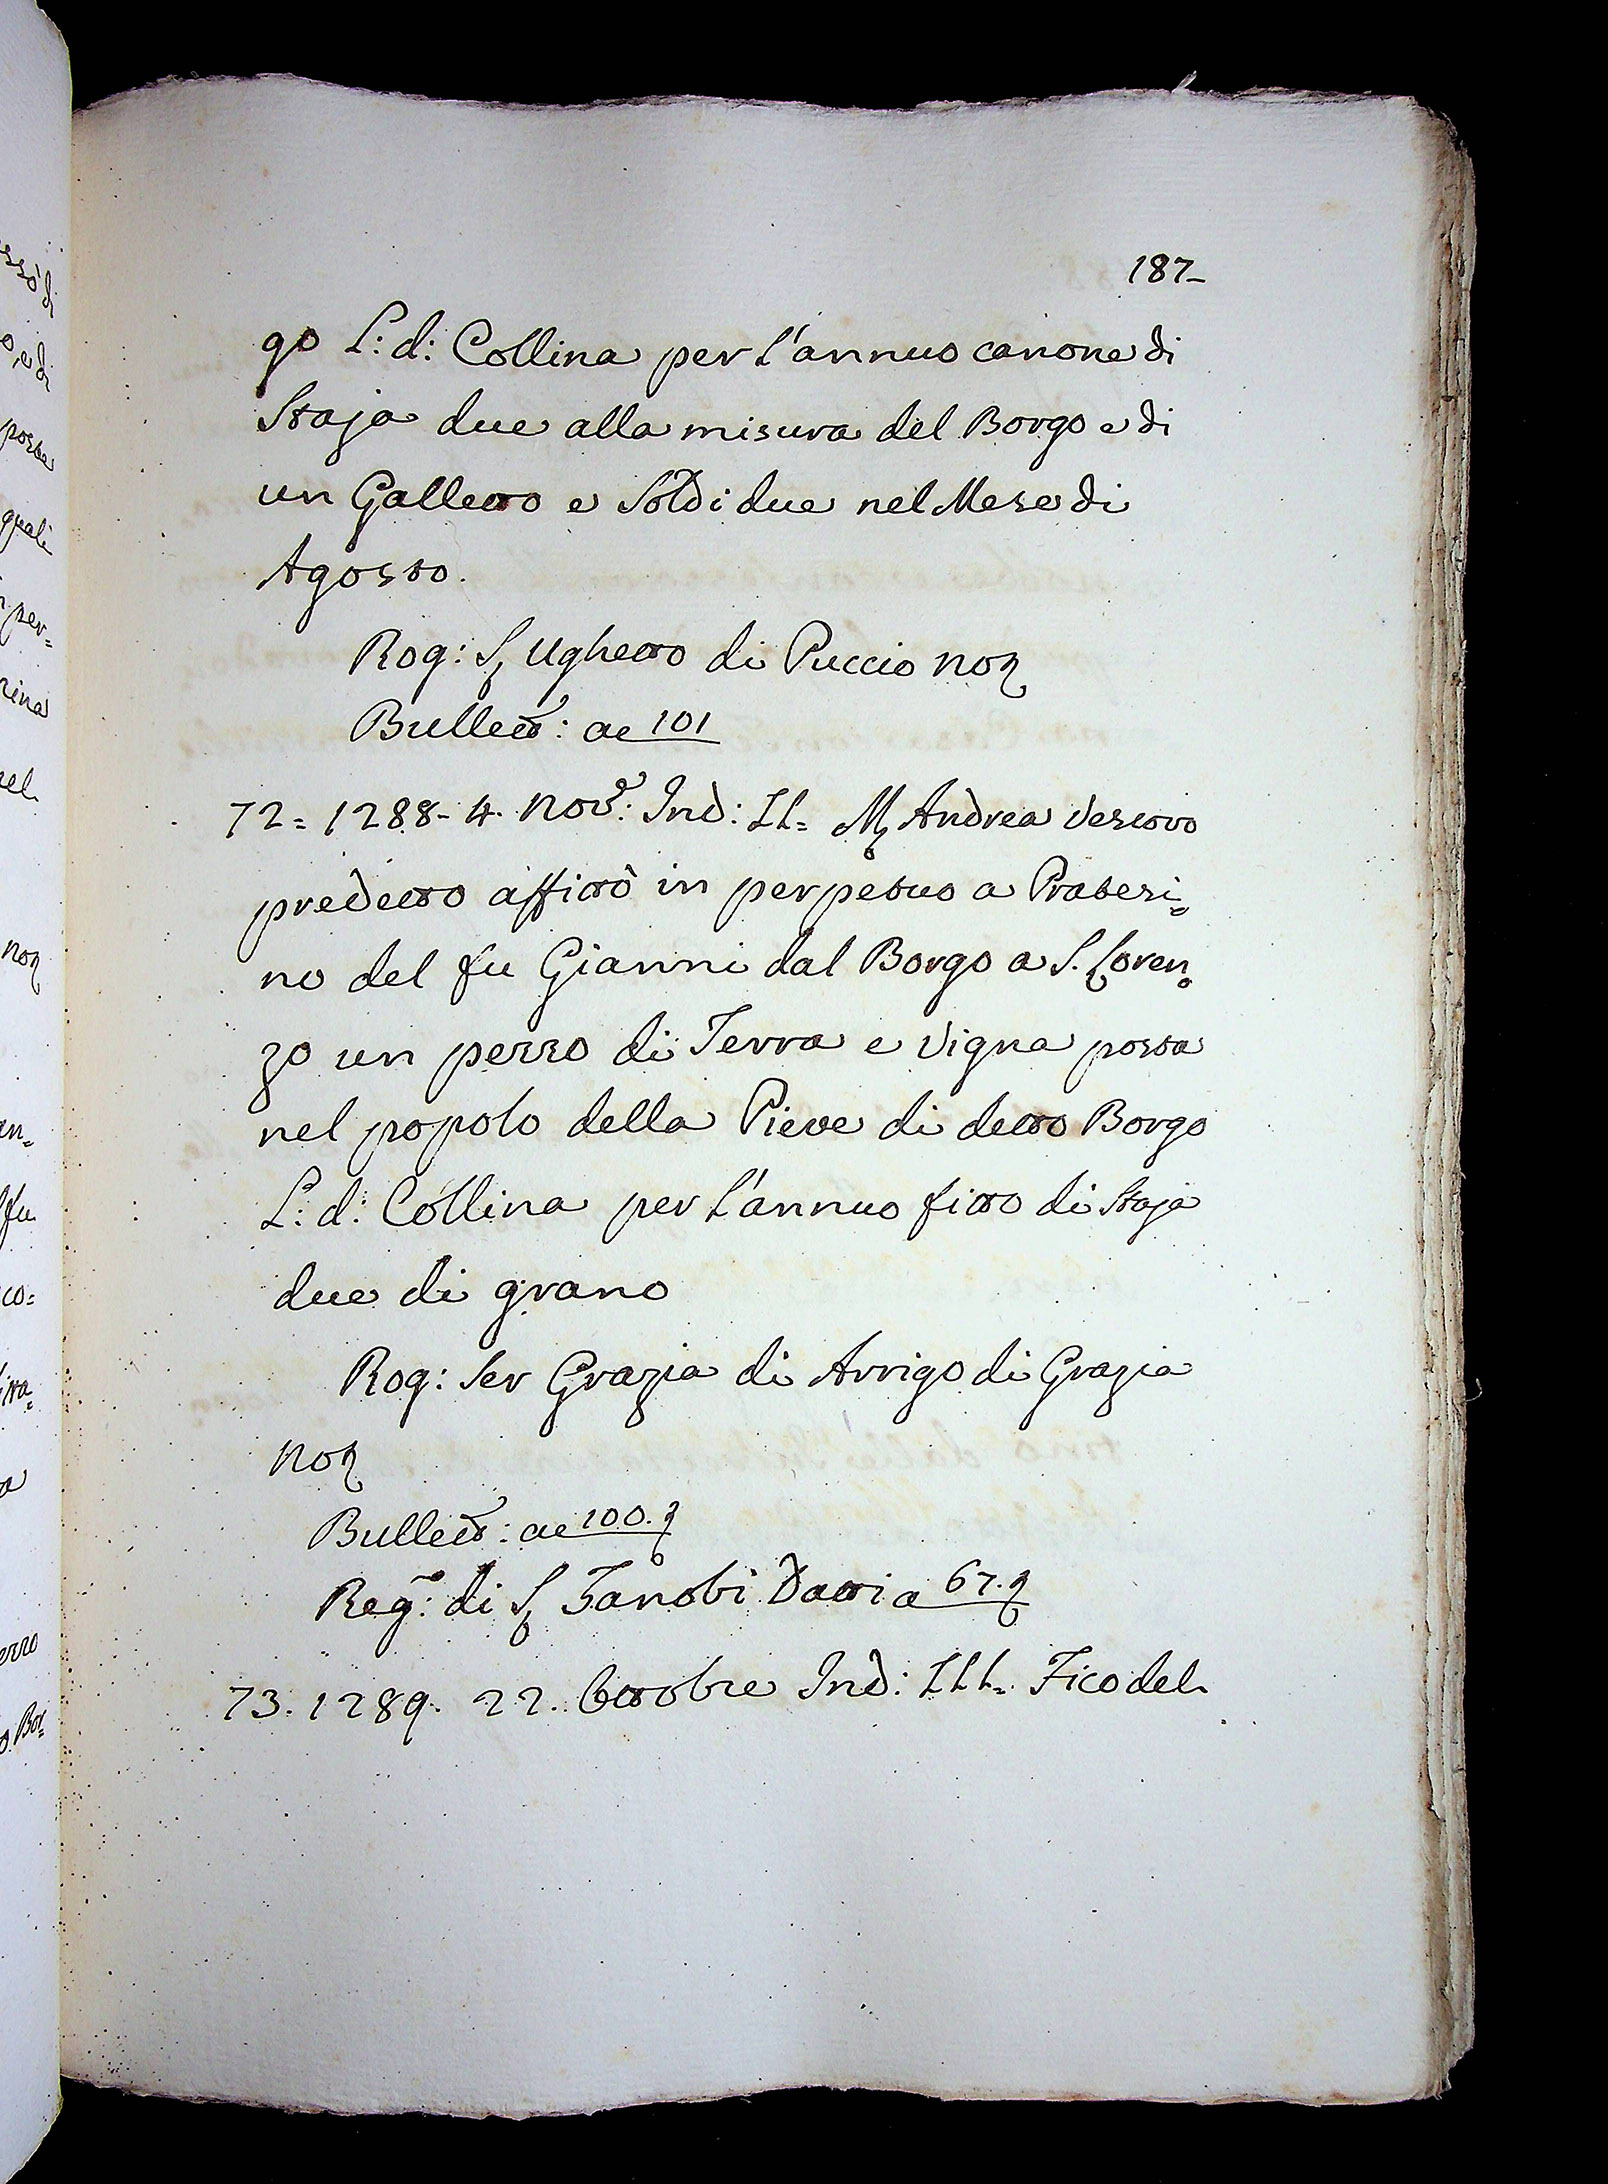 187-
go L: d: Collina per l'annuo canone di
Staja due alla misura del Borgo e di
un Galletto e Soldi due nel Mese di
Agosto.
Rog: S. Ughetto di Puccio not
Bullett: ac 101
72= 1288- 4. Nov.e: Ind: II= M. Andrea Vescovo
predetto affittò in perpetuo a Pratesi=
no del fu Gianni dal Borgo a S. Loren=
zo un pezzo di Terra e Vigna posta
nel popolo della Pieve di detto Borgo
L: d: Collina per l'annuo fitto di Staja
due di grano
Rog: Ser Grazia di Arrigo di Grazia
not
Bullett: ac 100. t
Reg.o: di S. Zanobi Datti a 67. t
73. 1289. 22. Ottobre Ind: III= Fico del